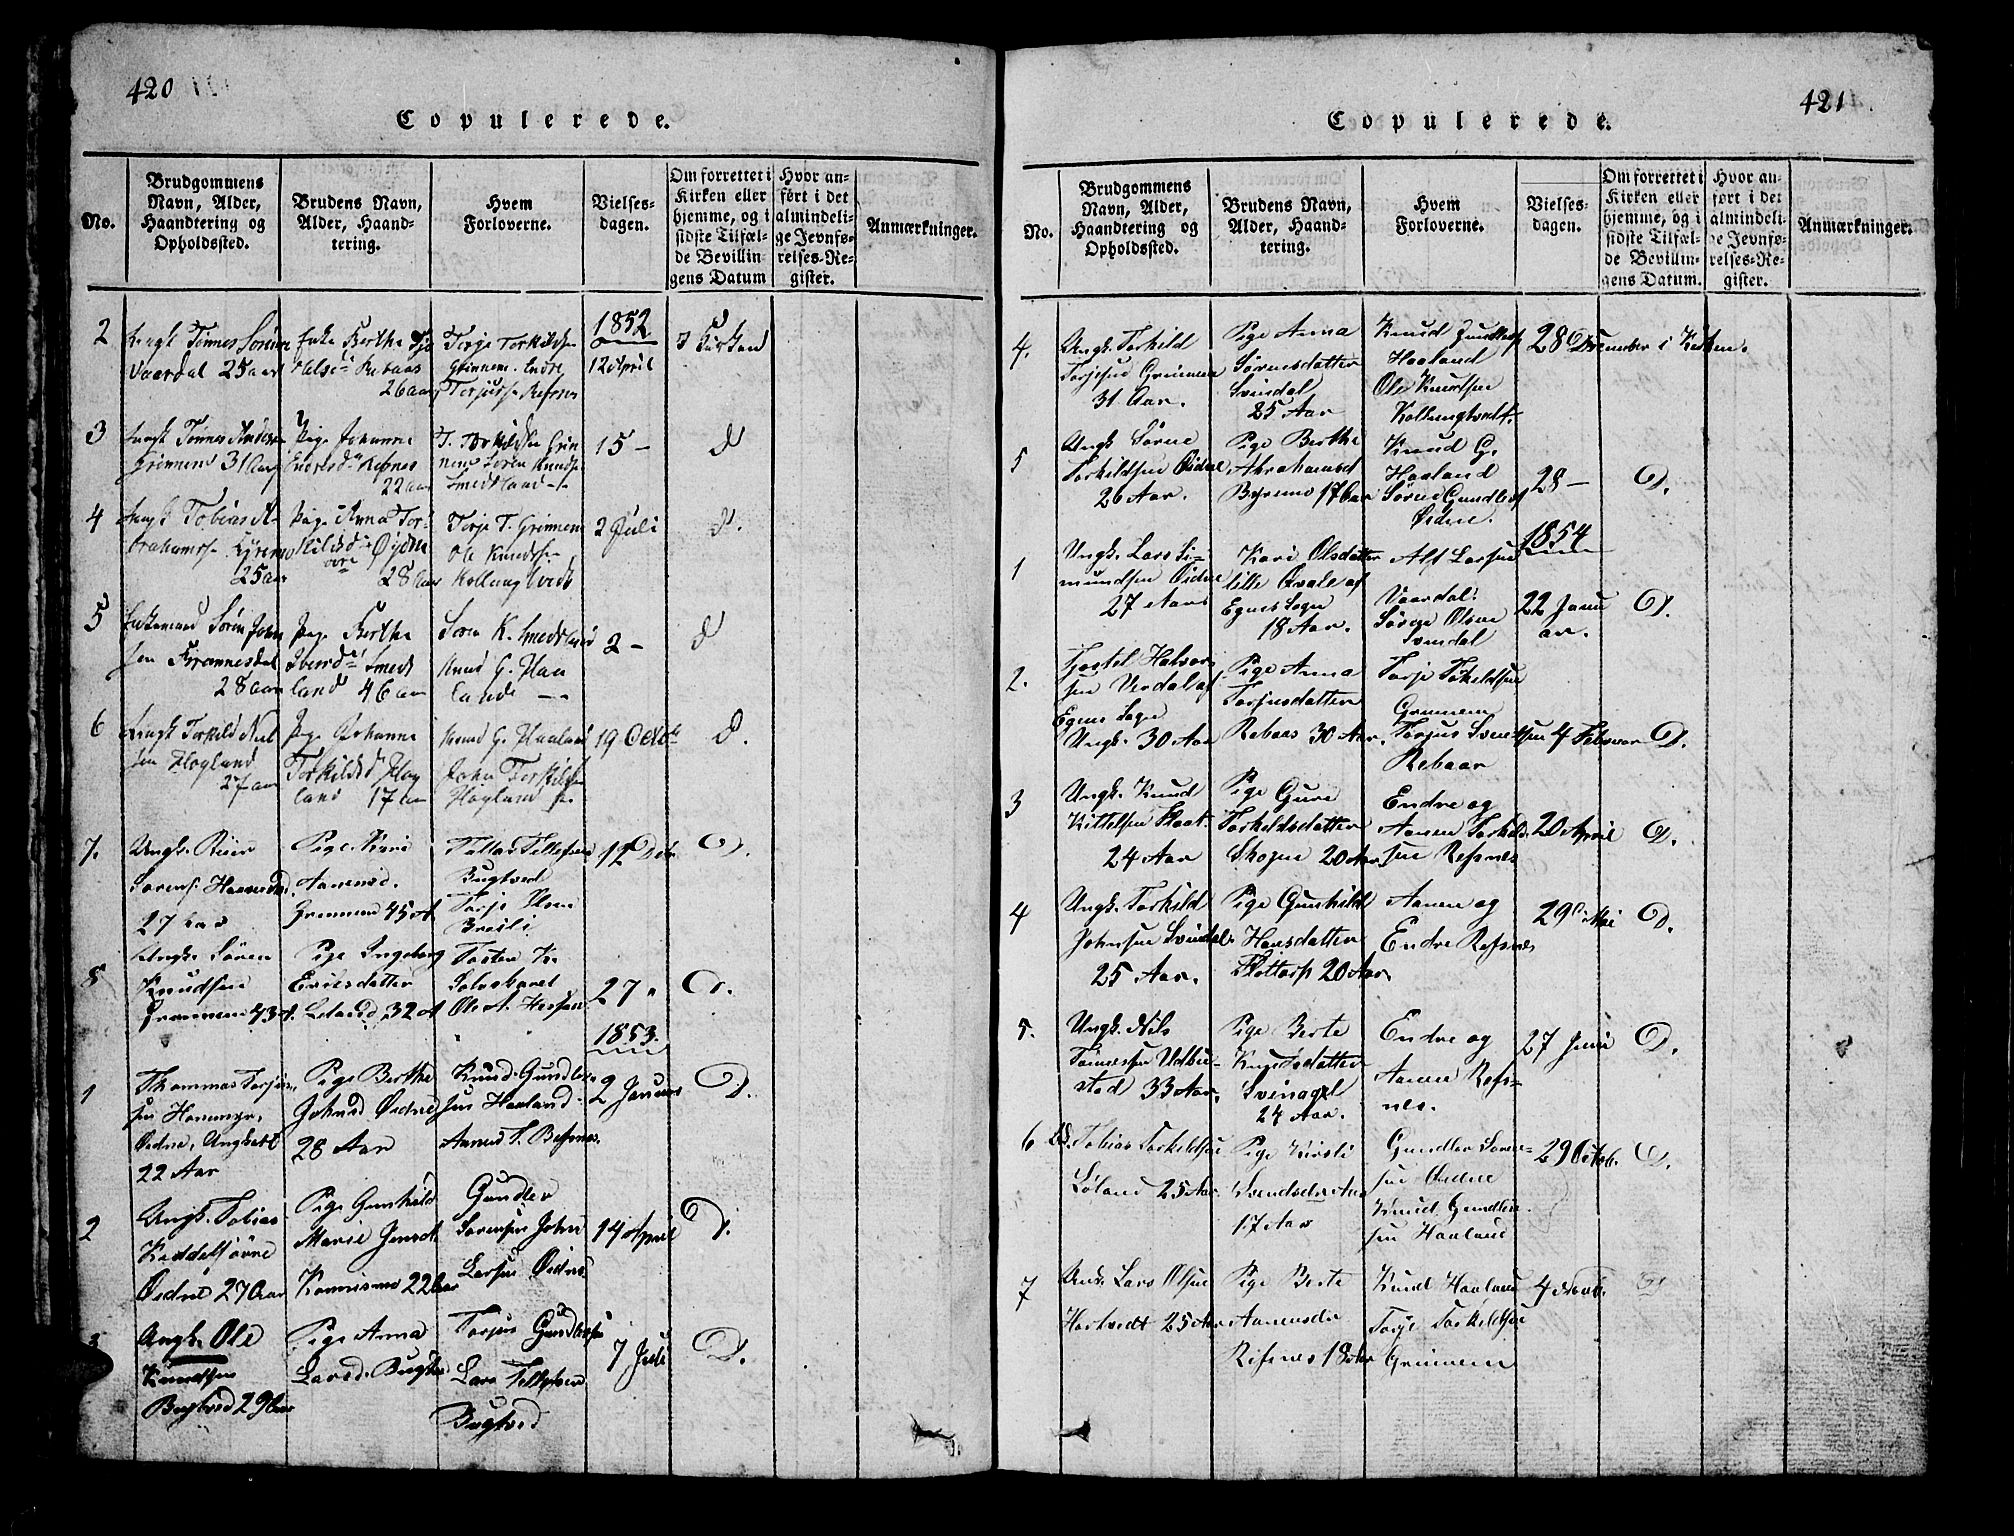 420
Copulerede.
No.
Brudgommens
Navn, Alder,
Haandtering og
Opholdssted.
Brudens Navn,
Alder, Haand-
tering.
Hvem
Forloverne.
Vielses-
dagen.
Om forrettet i
Kirken eller
hjemme, og i
sidste Tilfæl-
de Bevillin-
gens Datum
Hvor an-
ført i det
almindeli-
ge Jevnfø-
relses-Re-
gister.
Anmærkninger.
1852
2
Ungk Tønnes
Vaardal 25 aar
Enke Berthe
Rebaas
26 aar
Torje Torkilds
Grinnem. Endre
Torjus Refsnes
12 April
I Kirken
3
Ungk Tønnes Anders
Grinnem 31 aar
Pige Johanne
Endresd Refsnes
22 aar
T. Torkildsen Grin
nem Soren Knuds
Smedland
15 –
d
4
Ungk Tobias A
brahams Byremo
25 aar
Pige Anna Tor
kildsd Øidne
28 aar
Torje T. Grinnem
Ole Knuds
Kollungtvedt
2 Juli
d.
5
Enkemand Sören John
sen
28 aar
Pige Berthe
Smed
land 46 aar
Soren K. Smedland
Knud G. Haa
land
2 –
d
6
Ungk Torkild Niel
sen Høyland
27 aar
Pige Johanne
Torkildsd Høy
land 17 aar
Knud G. Haaland
John Torkilds
Høyland
19 Octb
d.
7.
Ungk. Reier
Sørens
27 Aar
Pige Kari
Aanensd.
45 A
Tellef Tellefsen
Bugtved
Torje Olsen
Breili
12 Dcbr
D.
8
Ungk. Søren
Knudsen
43 A.
Pige Ingeborg
Eriksdatter
Leland 32 A
Torsten K.
Ole A.
27 "
D.
1853.
1
Thommas Torjus
sen Hommen,
Øidne, Ungkarl
22 Aar
Pige Berthe
Johnsd Øidne
28 Aar
Knud Gundler
sen Haaland
Aanen T. Refsnes.
2 Januar
D.
2
Ungk. Tobias
Keddelsørne
Øidne 27 Aar
Pige Gunhild
Marie Jensdt
22 Aar
Gundler
Sørensen John
Larsen Øidne
14 April
D.
3
Ungk. Ole
Knudsen
Bugtved 29 Aar
Pige Anna
Larsd. Bugtve
Torjus Gundlersen
Lars Tellefsen
Bugtved
7 Juli
D.
421
Copulerede.
No.
Brudgommens
Navn, Alder,
Haandtering og
Opholdssted.
Brudens Navn,
Alder, Haand-
tering.
Hvem
Forloverne.
Vielses-
dagen.
Om forrettet i
Kirken eller
hjemme, og i
sidste Tilfæl-
de Bevillin-
gens Datum.
Hvor an-
ført i det
almindeli-
ge Jevnfø-
relses-Re-
gister.
Anmærkninger.
4.
Ungk. Torkild
Torjesen Grinnem
31 Aar.
Pige Anna
Sørensdatter
Svindal
25 Aar
Knud Gundlers
Haaland
Ole Knudsen
Kollungtvedt.
28 December i Kirken.
5
Ungk Sørne
Torkildsen Øidne
26 Aar.
Pige Berthe
Abrahamsd
Byremo 17 Aar
Knud G.
Haaland
Sørne Gundlers
Øidne.
28 –
D.
1854
1
Ungk. Lars Si-
mundsen Øidne
27 Aar
Kari Olsdatter
lille Qvale af
Egnes Sogn
18 Aar.
Alf Larsen
Vaardal.
Børge Olsen
Svindal
22 Janu
ar.
D.
2.
Tjostel Halvor
sen Verdal af
Egnes Sogn
Ungk. 30 Aar
Pige Anna
Torjusdatter
Rebaas 30 Aar.
Torje Torkildsen
Grinnem
Torjus Svendsen
Rebaas
4 Februar
D.
3
Ungk. Knud
Kittelsen Flaat.
24 Aar
Pige Gure
Torkildsdatter
Skogen 20 Aar
Endre og
Aanen Torkild-
sen Refsnes
20 April
D.
4
Ungk. Torkild
Johnsen Svindal
25 Aar.
Pige Gunhild
Hansdatter
Flottorp 20 Aar
Aanen og
Endre Refsnes
29 Mai
D.
5.
Ungk. Nils
Tønnesen Udbu-
stad 33 Aar.
Pige Berte
Knudsdatter
Svinagel
24 Aar.
Endre og
Aanen Refs-
nes.
27 Juni
D.
6
Tobias Torkildsen
Løland 25 Aar.
Pige Kirsti
Svendsdatter
17 Aar
Gundler Søren-
sen Øidne
Knud Gundler
sen Haaland
29 Octob.
D.
7
Ungk. Lars Olsen
Hortvedt 25 Aar
Pige Berte
Aanensdr
Refsnes 18 Aar
Knud Haaland
Torje Torkildsen
Grinnem
4 Novb.
D